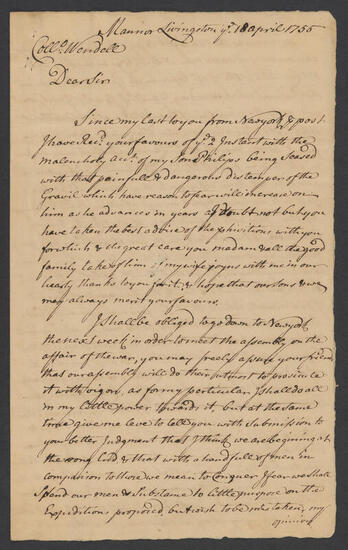 Mannor Livingston ye. 18 april 1755
Collo. Wendell
Dear Sir
Since my last to you from Newyork post
I have Recd. your favours of ye. 2 Instant with the
maloncholy acct. of my Sone Philips being Seased
with that painfull & dangerous distemper of the
Gravil which have reason to fear will increase on
him as he advances in years I doubt not but you
have taken the best advice of the phisitions with you
for which & the great care you madam & all the good
family take of him my wife joyns with me in our
hearty thanks to you for it, & hope that our sons & we
may always merit your favours.
I Shall be obliged to go down to Newyork
the next week in order to meet the assembly on the
affair of the war, you may freely assure your friends
that our assembly will do their utmost to prosicute
it with vigor, as for my particular I shall do all
in my little power towards it, but at the same
time give me leve to tell you with Submission to
your better Judgment that I think we are begining at
the rong End & that with a handfull of men in
comparison to those we mean to Conquer I fear we shall
Spend our men & Substance to little purpose on the
Expeditions proposed but wish to be mistaken, my
opinion